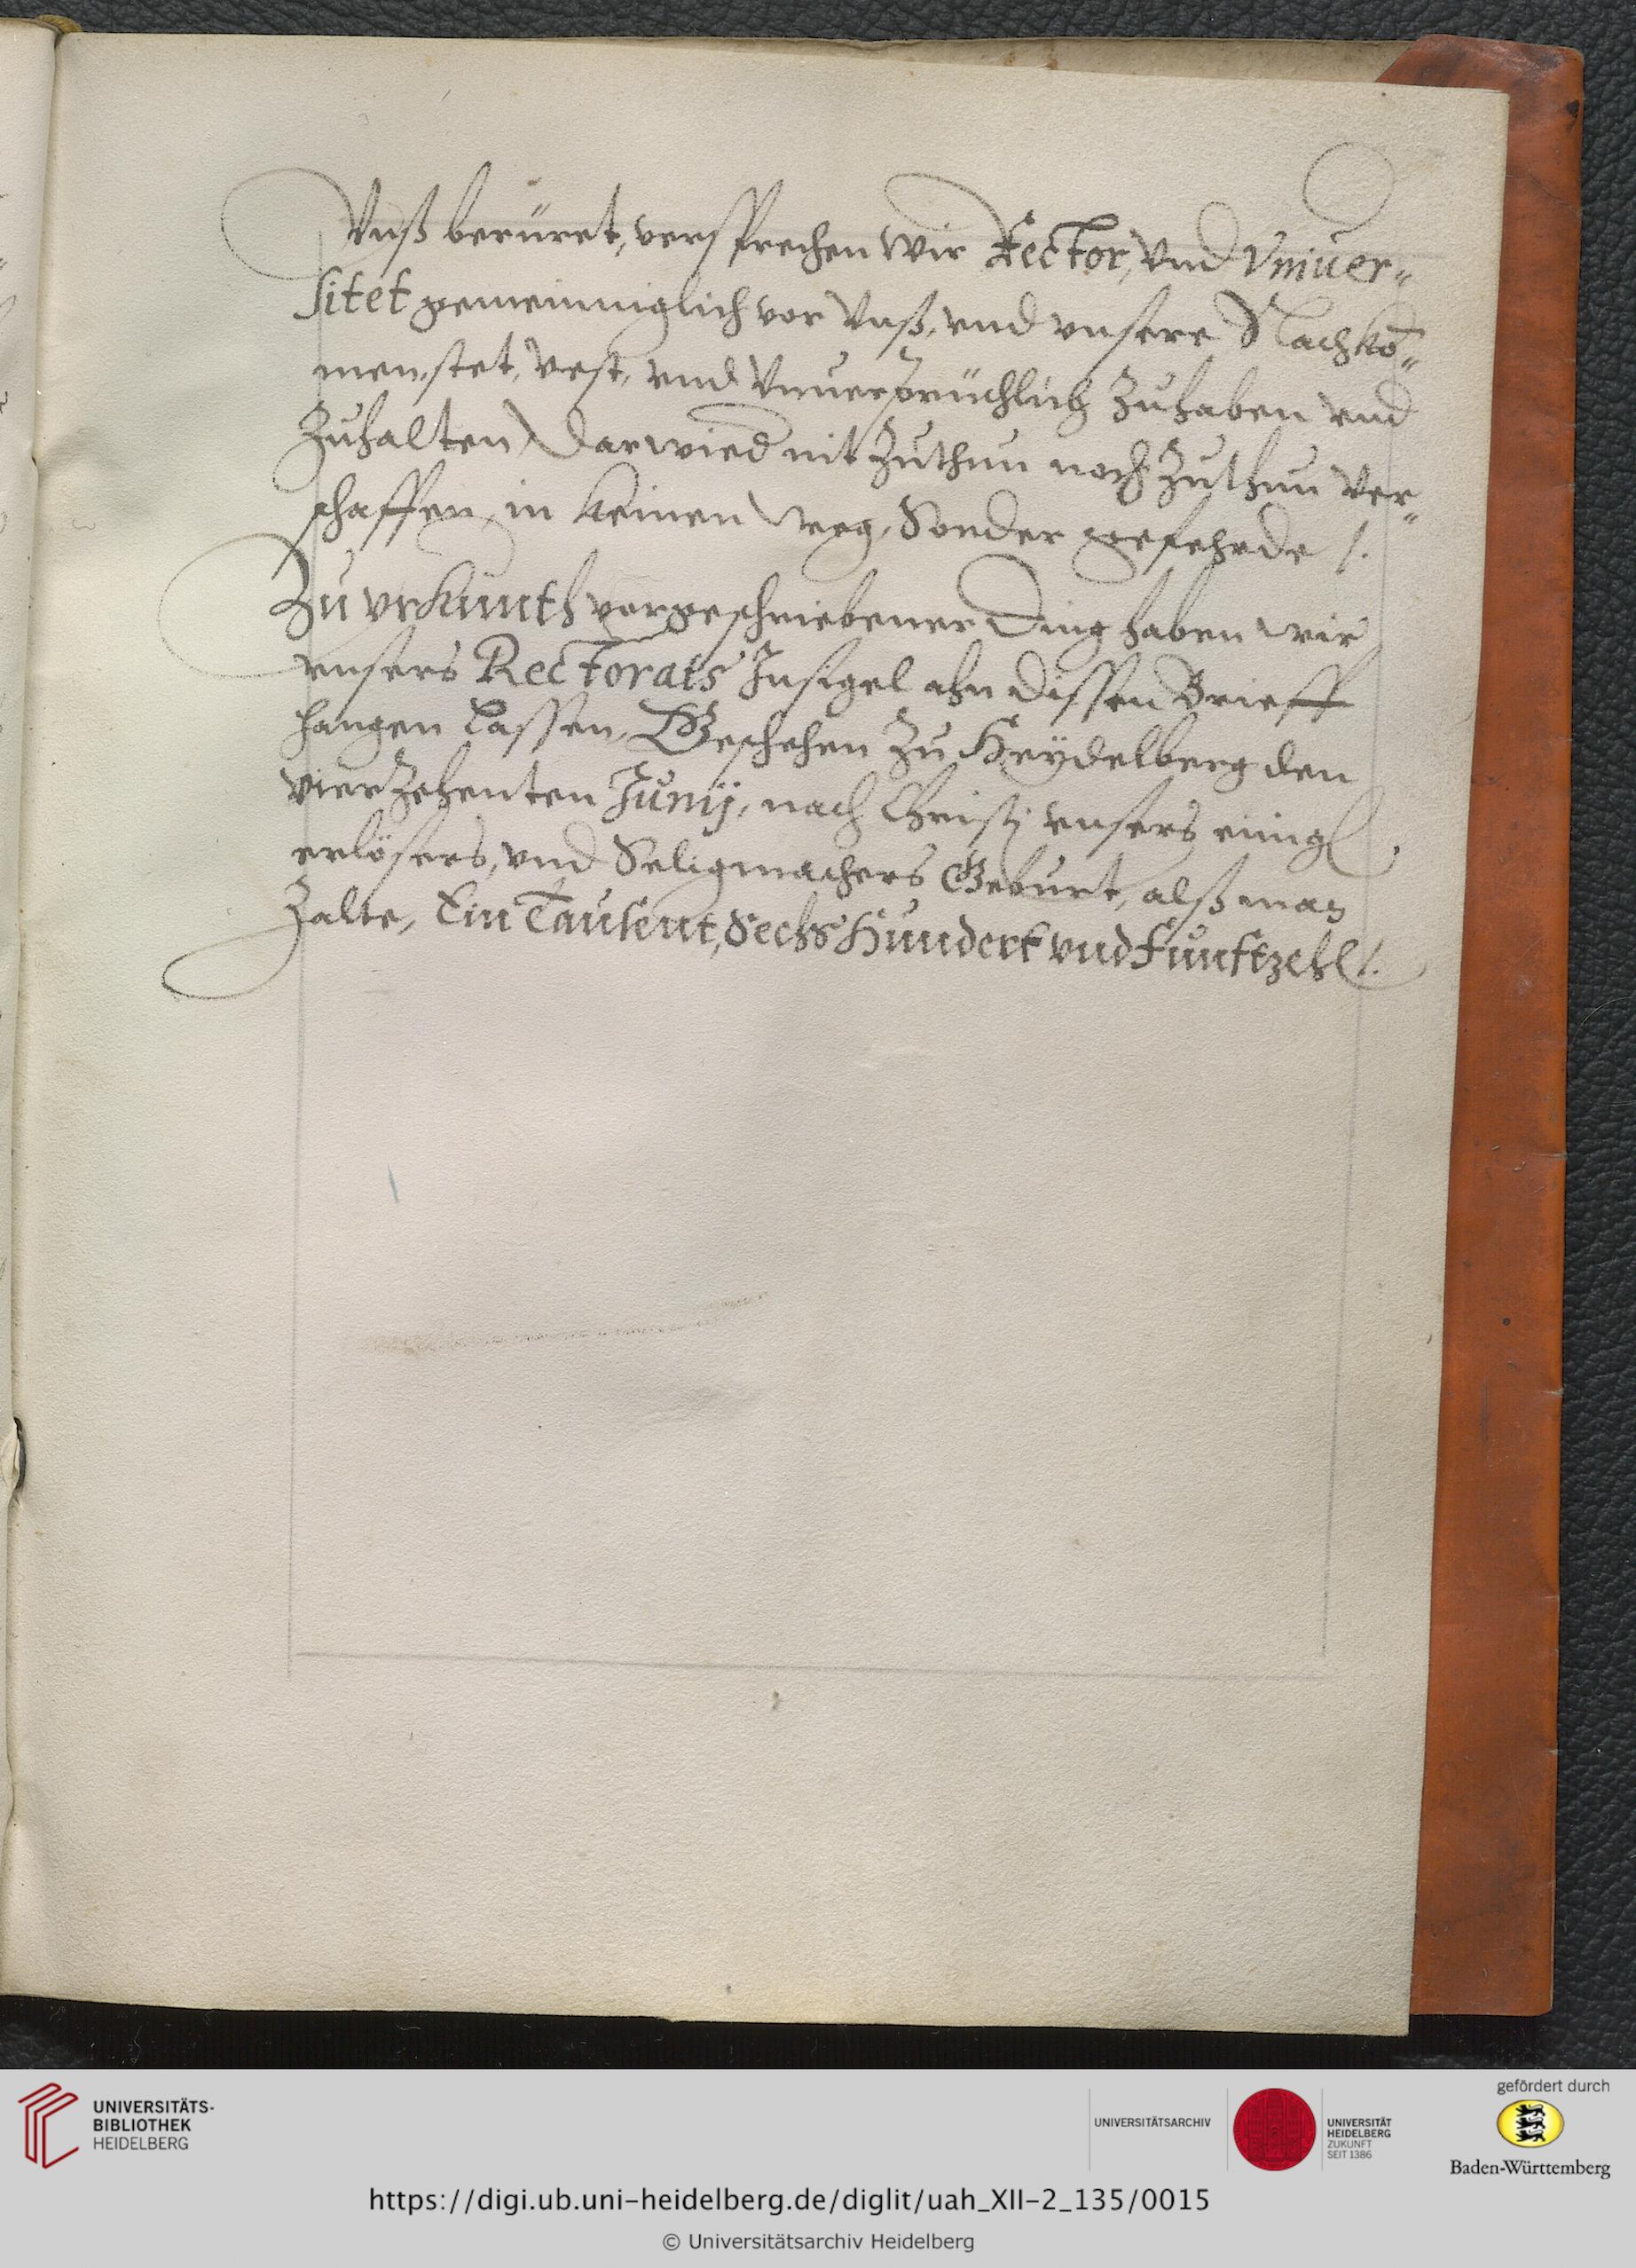 Vnß berüret, versprechen wir Rector, vnd Vniuer=
sitet gemeinniglich vor Vnß, vnd vnsere Nachko=
men, stet, vest, vnd Vnuerbrüchlich zuhaben vnd
zuhalten, darwied nit zuthun noch zuthun ver=
schaffen, in keinen weg, Sonder geferhde /.
Zu vrkunth vorgeschriebener Ding haben wir
vnsers Rectorats Insigel ahn dissen Brieff
hangen lassen, Geschehen zu Heydelberg den
vierzehenten Junij, nach Christj vnsers einig
erlösers, vnd Seligmachers Geburt, alß man
zalte, Ein Tausent, Sechs Hundert vnd Fünftzeh /.
UNIVERSITÄTS-
BIBLIOTHEK
HEIDELBERG
UNIVERSITÄTSARCHIV
UNIVERSITÄT
HEIDELBERG
ZUKUNFT
SEIT 1386
gefördert durch
Baden-Württemberg
https://digi.ub.uni-heidelberg.de/diglit/uah_XII-2_135/0015
© Universitätsarchiv Heidelberg